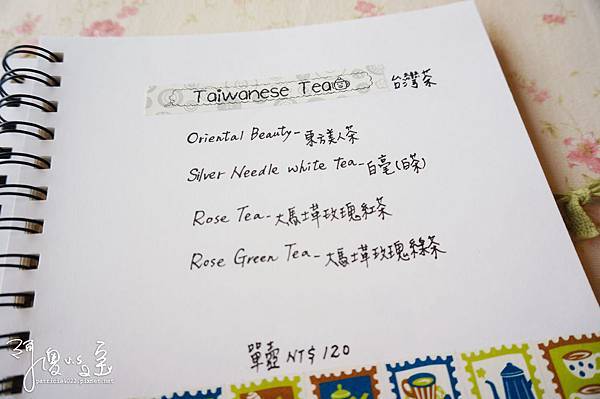 Taiwanese Tea 台灣茶
Oriental Beauty-東方美人茶
Silver Needle white tea-白毫(白茶)
Rose Tea-大馬士革玫瑰紅茶
Rose Green Tea-大馬士革玫瑰綠茶
單壺 NT$ 120
patricia4022.pixnet.net